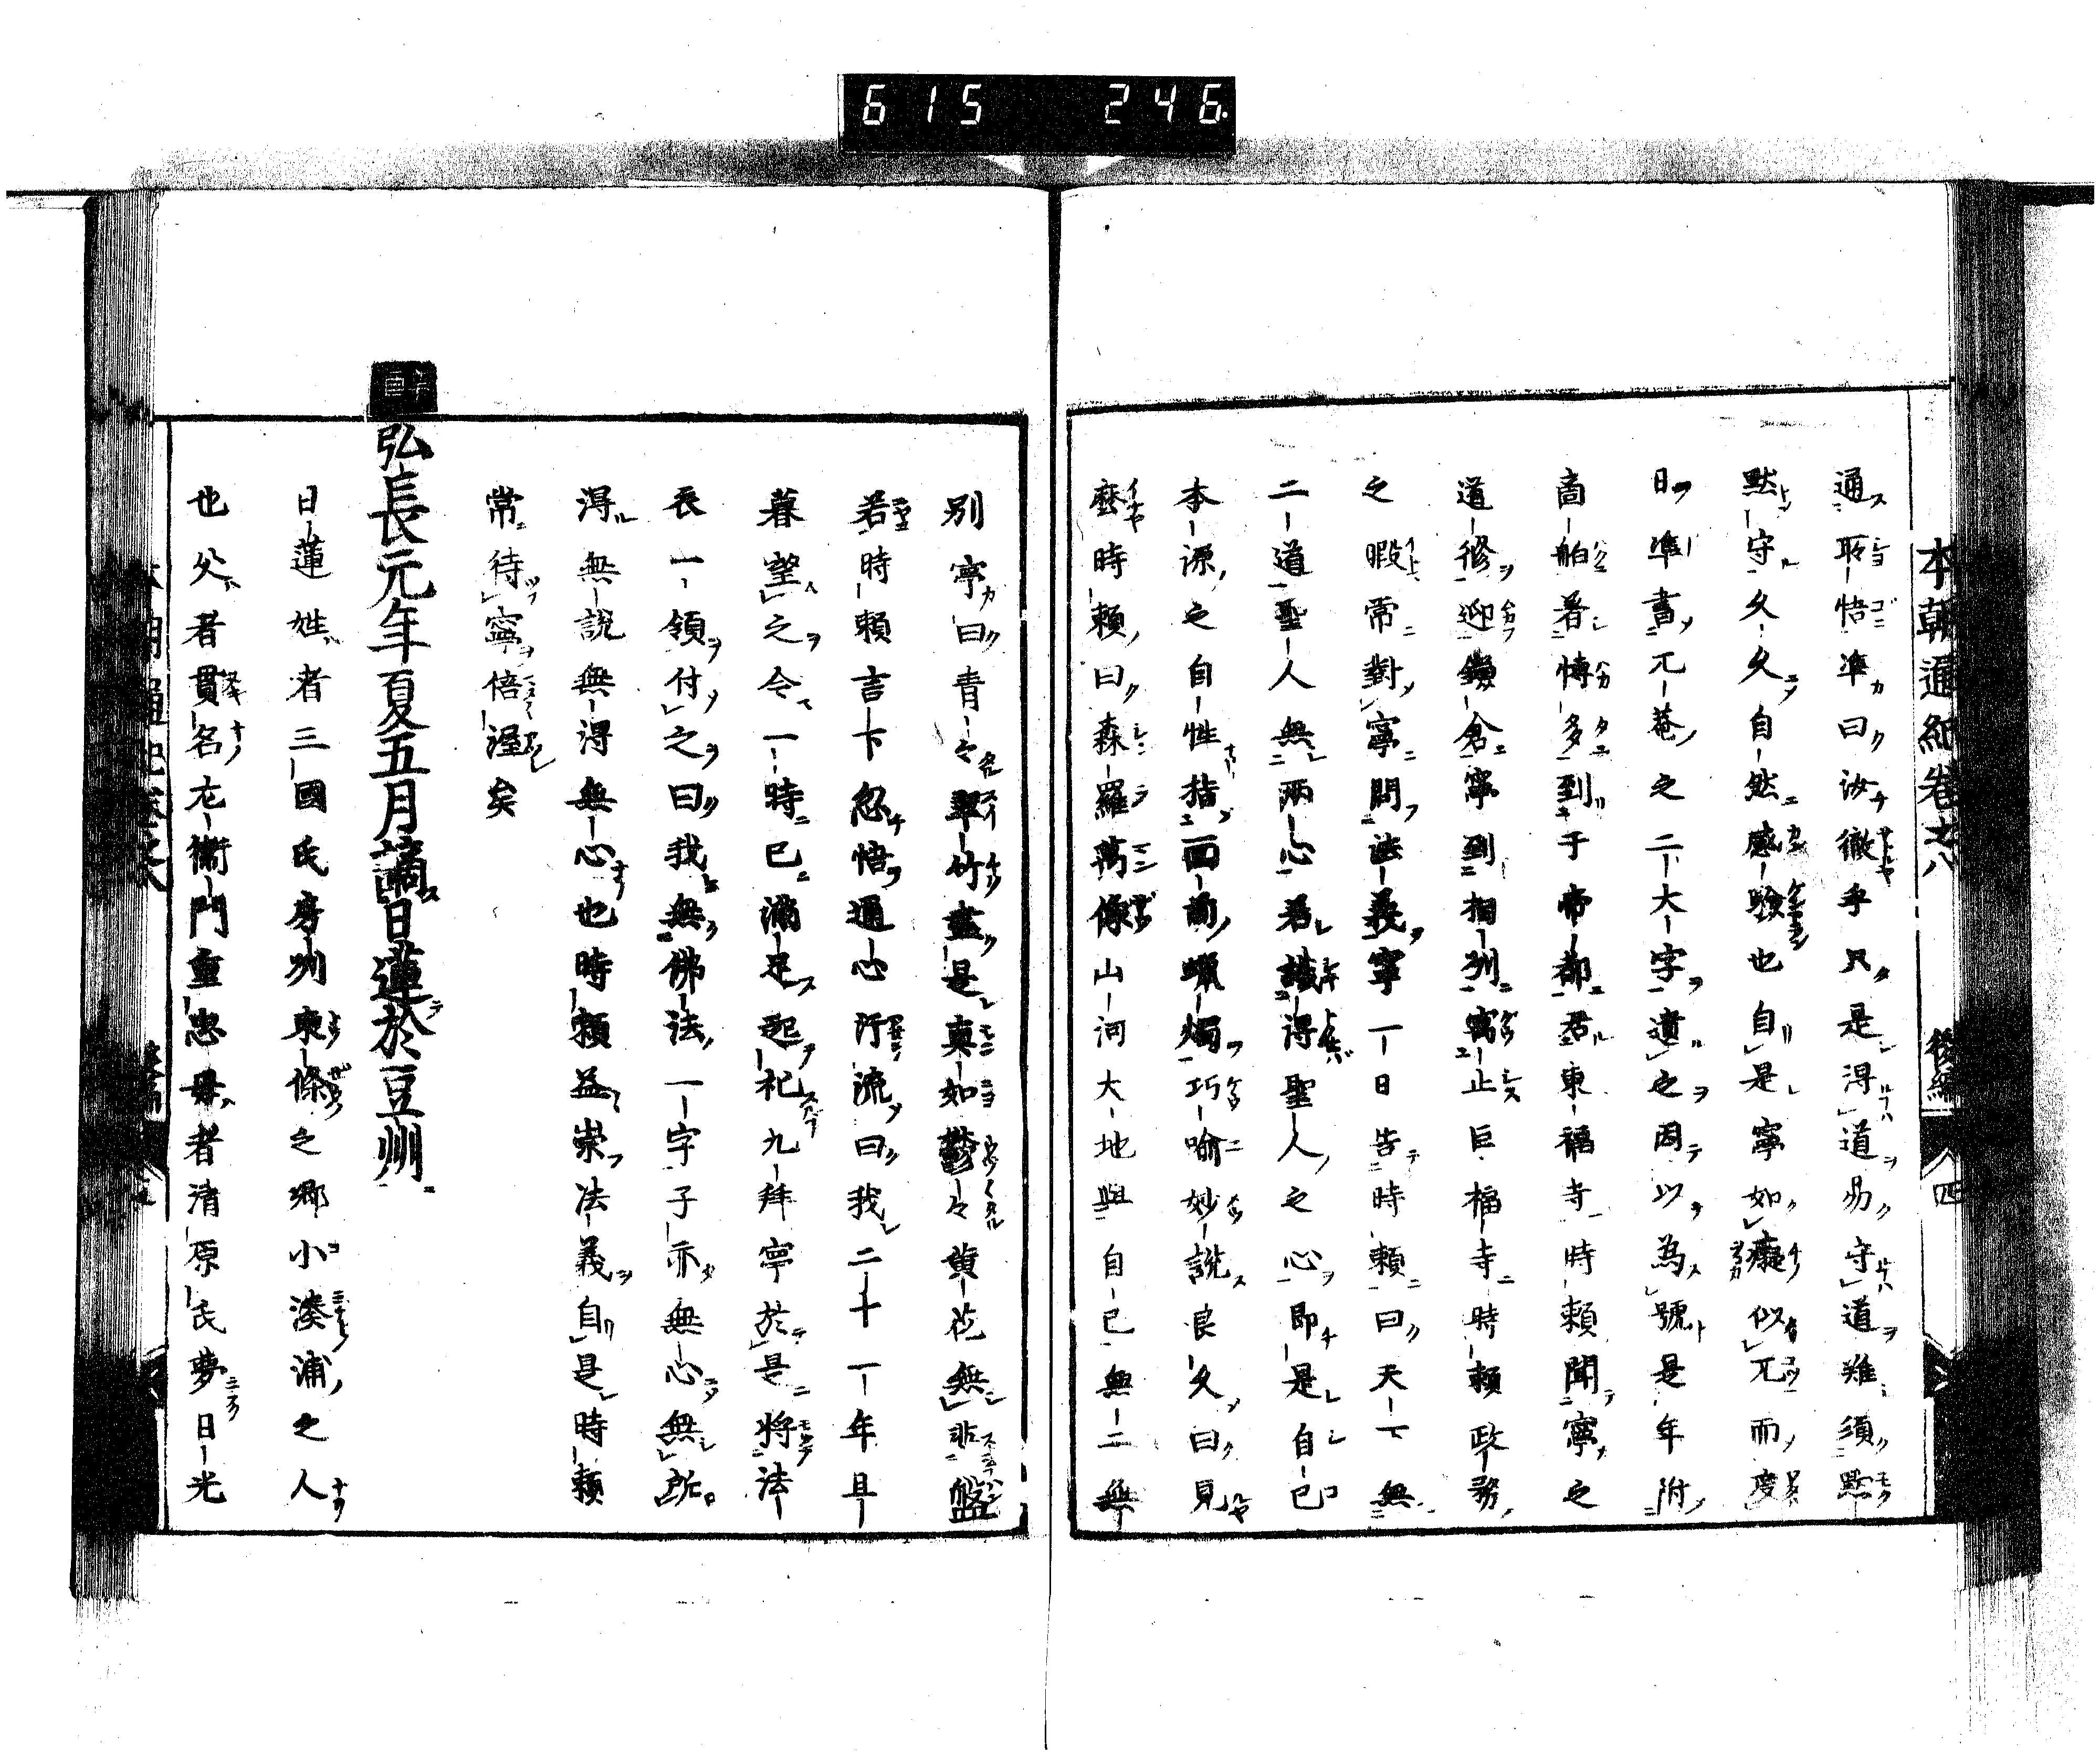 615 246
本朝通紀卷之八 後編 八 四
通聆悟準曰汝徹乎只是得道易守道難須黙
黙守久久自然感驗也自是寧如癡似兀而度
日準書兀菴之二大字遺之因以為號是年附
商舶著博多到于帝都君東福寺時頼聞寧之
道修迎鎌倉寧到相州寓止巨福寺時頼政務
之暇常對寧問法義寧一日告時頼曰天下無
二道聖人無兩心若識得聖人之心即是自已
本源之自性指面前蠟燭巧喻妙説良久曰見
麼時頼曰森羅萬像山河大地與自已無二無
別寧曰青々翠竹盡是真如鬱々黄花無非盤
若時頼言下忽悟通心行流曰我二十一年旦
暮望之今一時已滿足起祀九拜寧於是將法
衣一領付之曰我無佛法一字子亦無心無所
得無説無得無心也時頼益崇法義自是時頼
常待寧倍渥矣
弘長元年夏五月謫日蓮於豆州
日蓮姓者三國氏房州東條之郷小湊浦之人
也父者貫名左衛門重忠母者清原氏夢日光